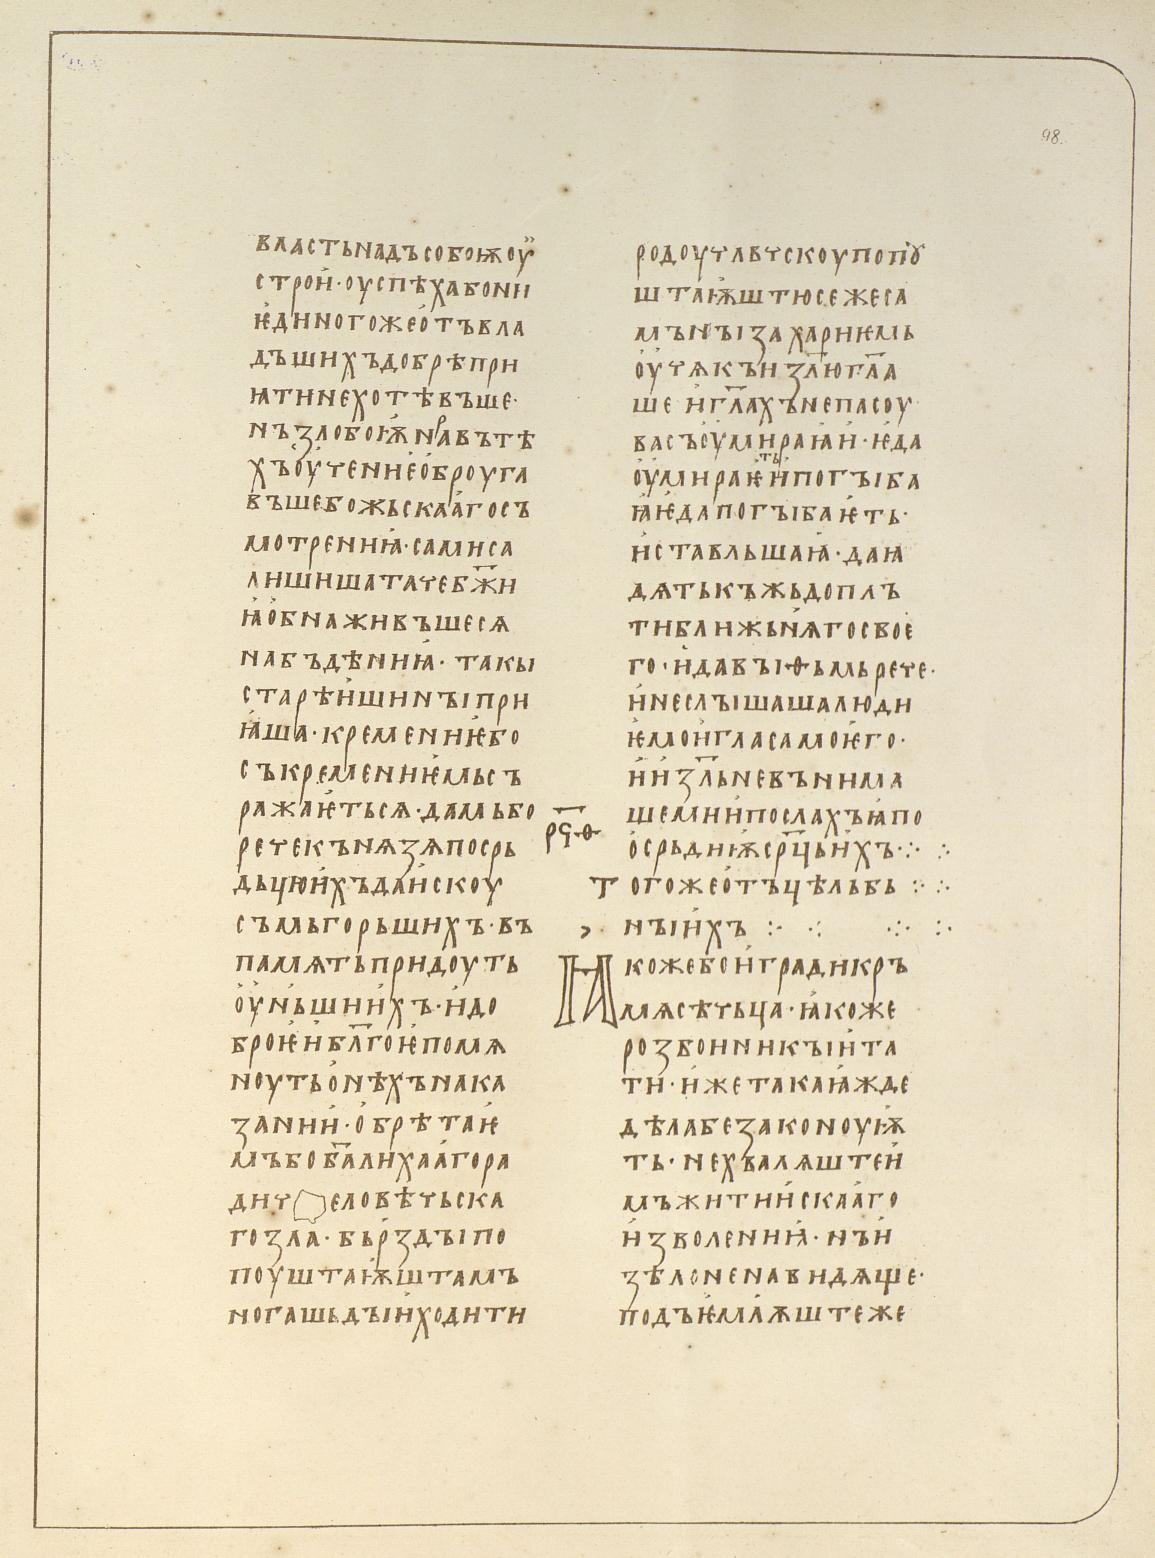 98.
властьнадъсобоѭоу
строи·оуспѣхабони
ѥдиногожеотъвла
дъшихъдобрѣпри
ꙗтинехотѣвъше·
нъзлобоѭнравътѣ
хъоучениеоброуга
въшебожьскаагосъ
мотрениꙗ·самиса
лишишатачебж҃и
ꙗобнаживъшесѧ
набъдѣниꙗ·такы
старѣишинꙑпри
ꙗша·кремениѥбо
съкремениѥмьсъ
ражаѥтьсѧ·дамьбо
речекънѧзѧпосрь
дьцюихъдаискоу
съмьгорьшихъ·въ
памѧтьпридоуть
оуньшиихъ·идо
броѥибл҃гоѥпомѧ
ноутьонѣхънака
зании·обрѣтаѥ
мъбоб҃алихаагора
дичеловѣчьска
гозла·бързꙑпо
поуштаѭштамъ
ногашьдꙑиходити
родоучльчскоупопꙋ
штаѭштюсежеса
мънꙑзахариѥмь
оучѧкъиз҃люгл҃а
ше игл҃ахънепасоу
васъоумираꙗи·ѥда
оумираѥтьипогꙑба
ꙗѥдапогꙑбаѥть·
иставльшаꙗ·даꙗ
дѧтькъжьдоплъ
тиближьнѧгосвоѥ
го·идавꙑѳьмьрече·
инеслꙑшашалюди
ѥмоигласамоѥго·
ииз҃льневънима
шемиипослахъꙗпо
осрьдиѭср҃цьихъ·:·
рч҃ѳ
тогожеотъцѣльбь
нꙑихъ
Ꙗкожебоиградикръ
мѧсѣчьца·ꙗкоже
розбоиникꙑита
ти·ижетакаꙗжде
дѣлабезаконоуѭ
ть·нехвалѧштеи
мъжитиискааго
изволениꙗ·нъи
зѣлоненавидѧще·
подъѥмлѧштеже